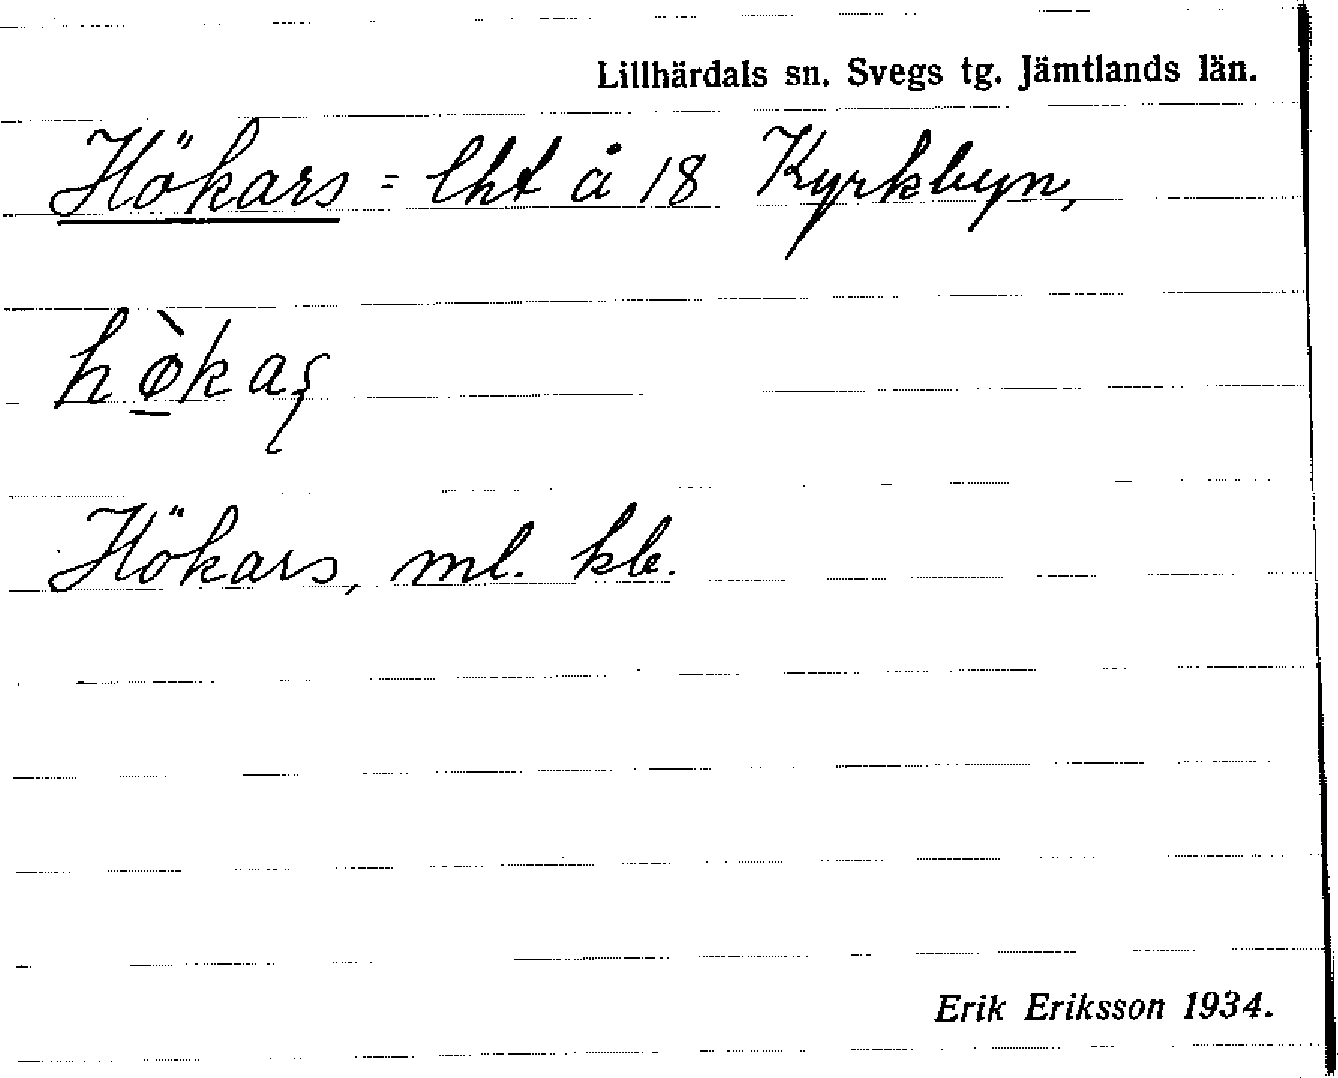 Lillhärdals sn. Svegs tg. Jämtlands län.
Hökars = lht å 18 Kyrkbyn,
hø̱̀kaʂ
Hökars, ml. kb.
Erik Eriksson 1934.